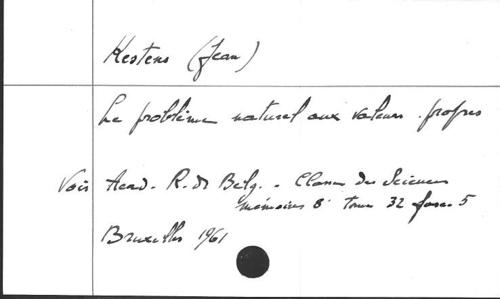 Kestens (Jean)
Le problème naturel aux valeurs propres
Voir Acad. R. de Belg. - Classe des Sciences
mémoires 8° tome 32 fasc. 5
Bruxelles 1961